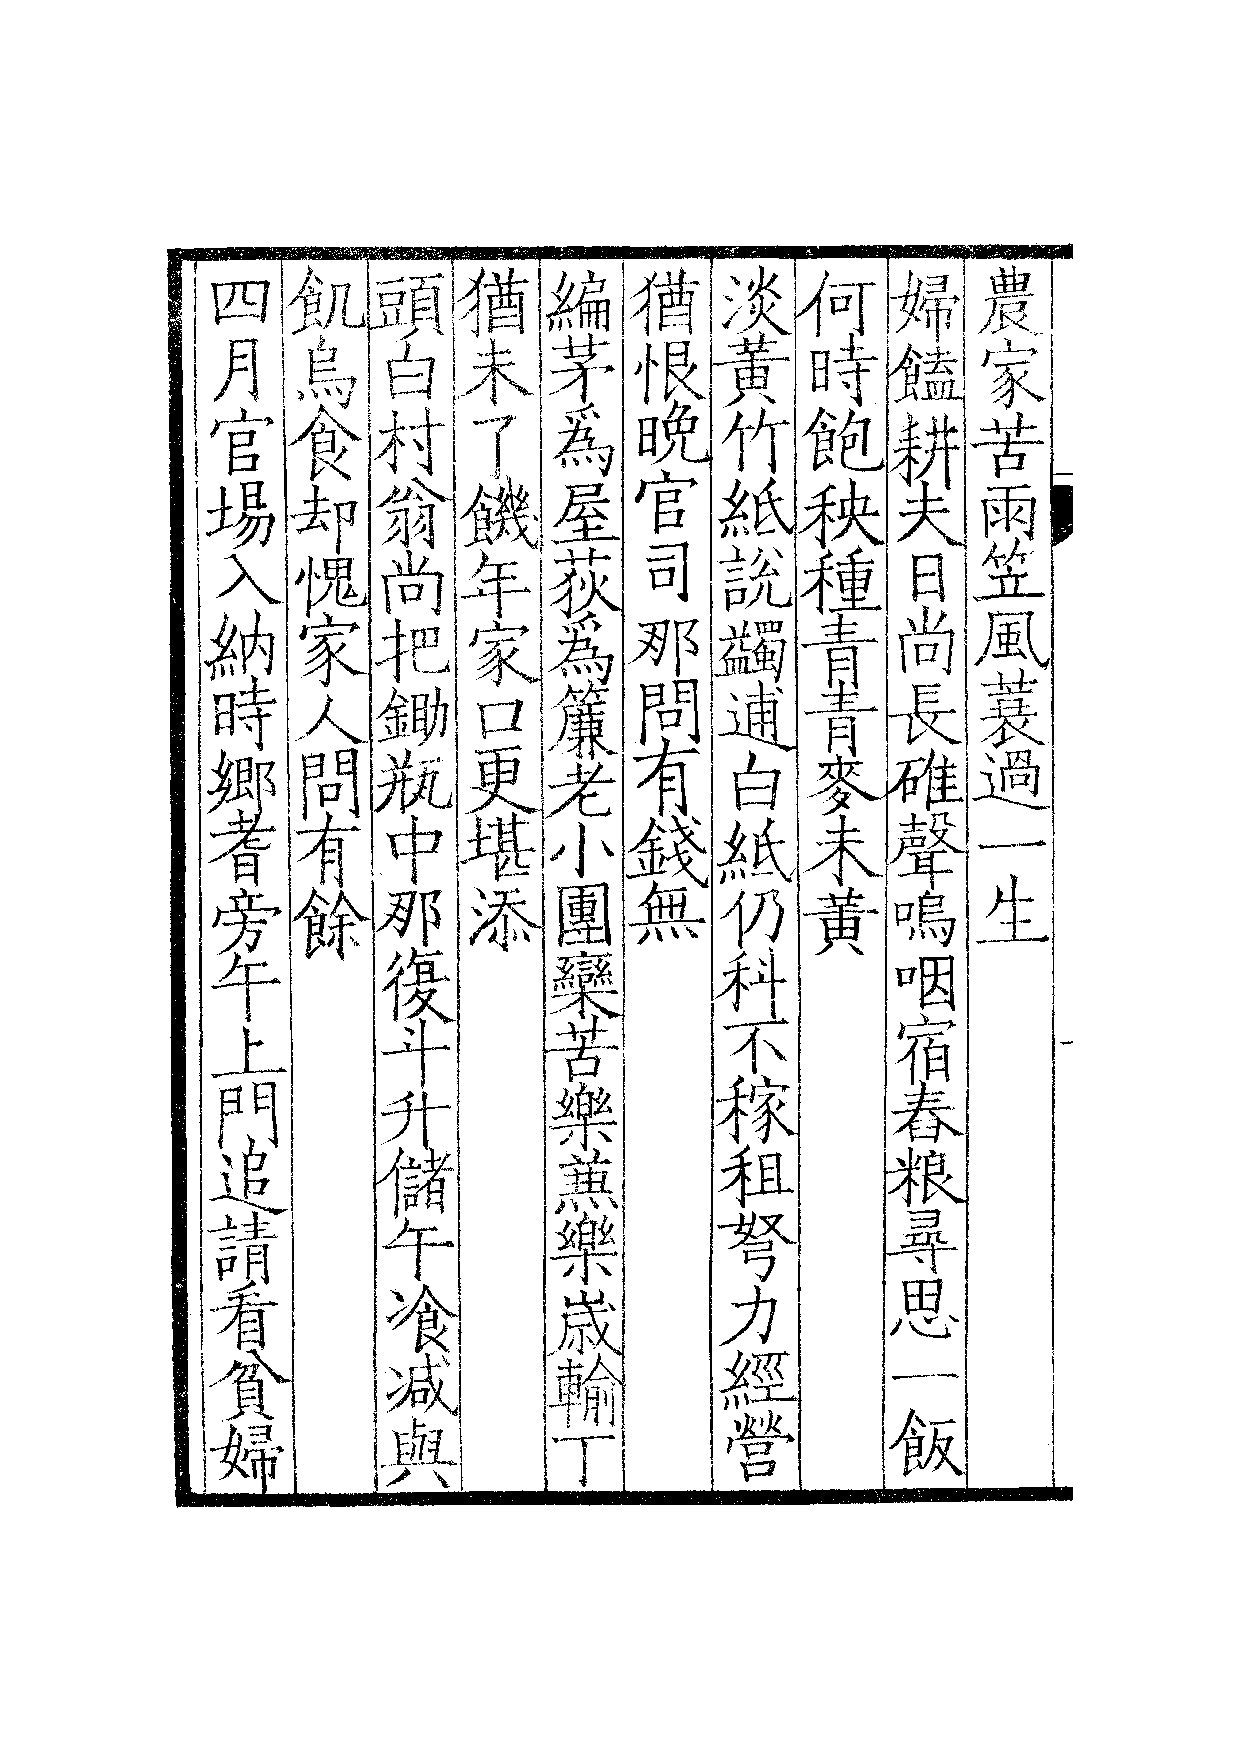 農家苦雨笠風蓑過一生
婦饁耕夫日尚長碓聲嗚咽宿舂粮尋思一飯
何時飽秧種青青麥未黃
淡黃竹紙說蠲逋白紙仍科不稼租努力經營
猶恨晚官司那問有錢無
編茅爲屋荻爲簾老小團欒苦樂蒹樂嵗輸丁
猶未了饑年家口更堪添
頭白村翁尚把鋤瓶中那復斗升儲午飡減與
飢烏食却愧家人問有餘
四月官場入納時鄉耆旁午上門追請看貧婦